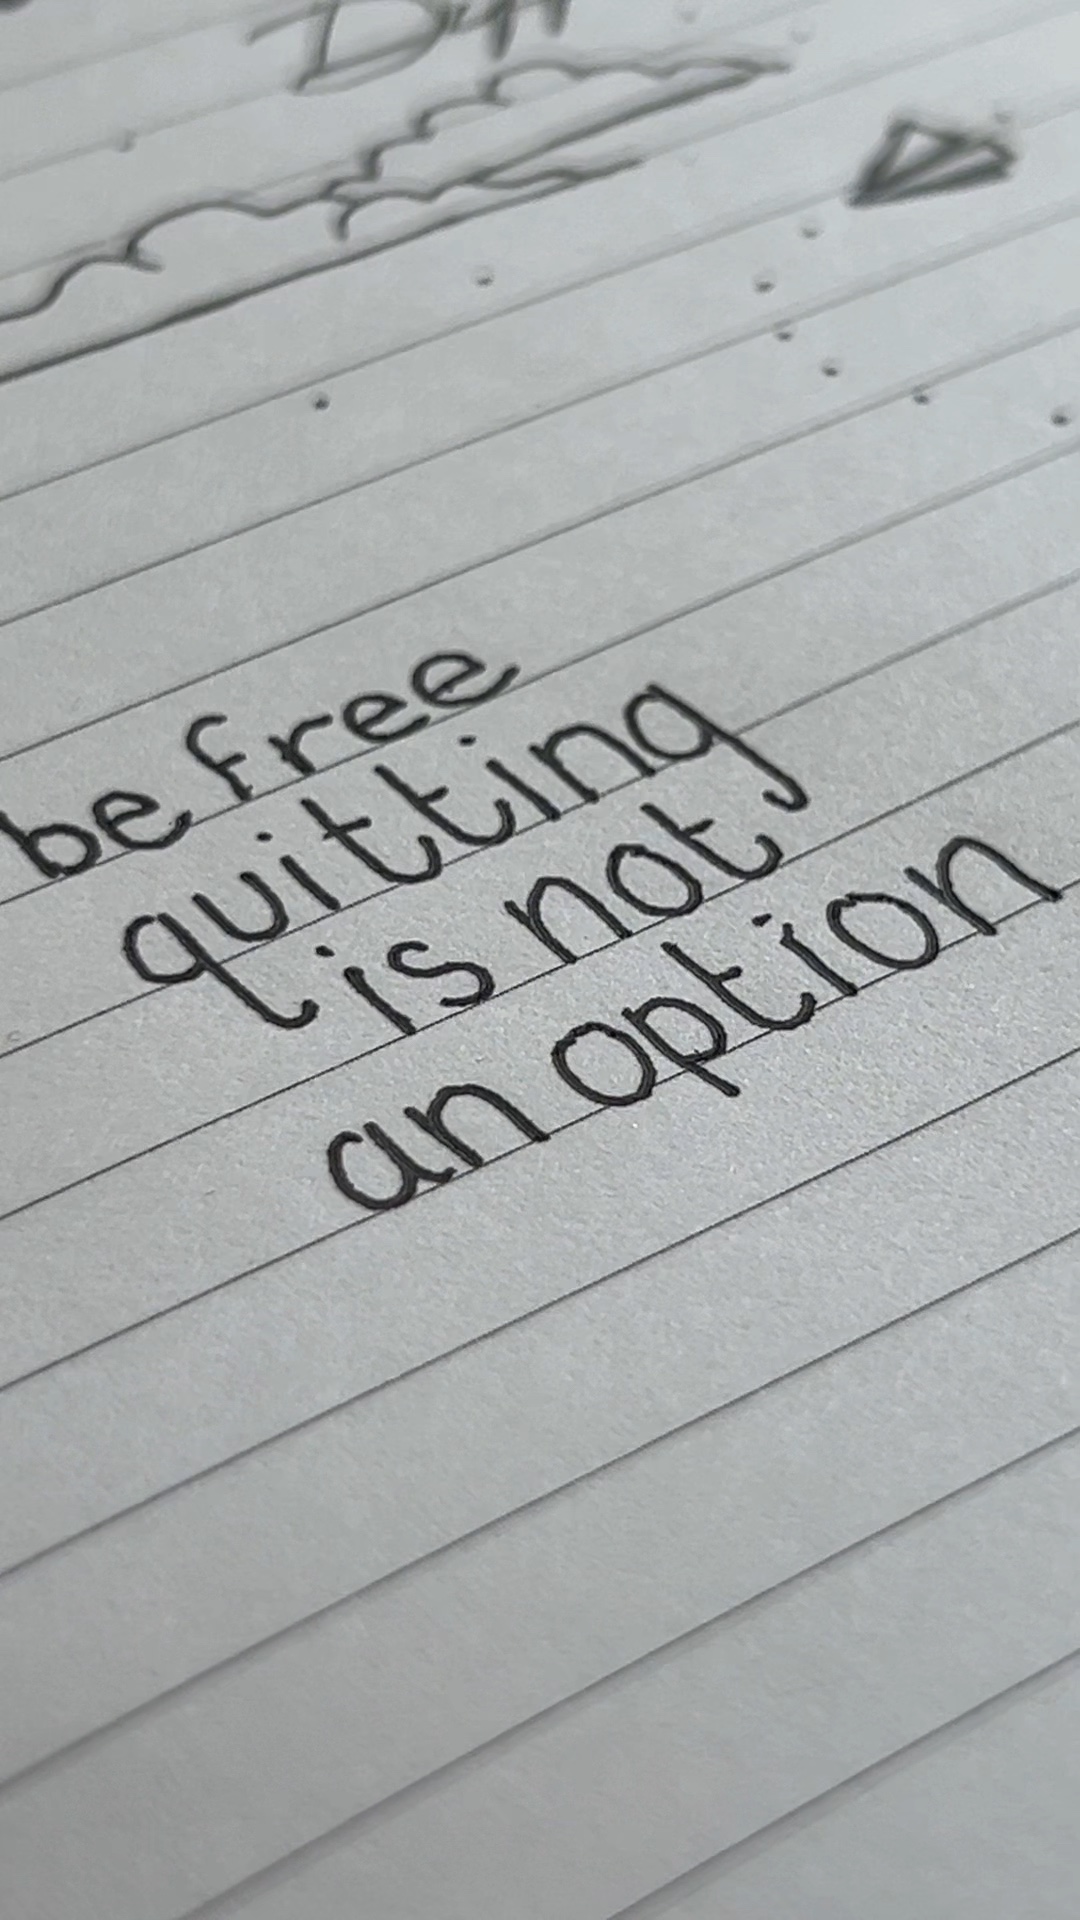 be free
quitting
is not
an option